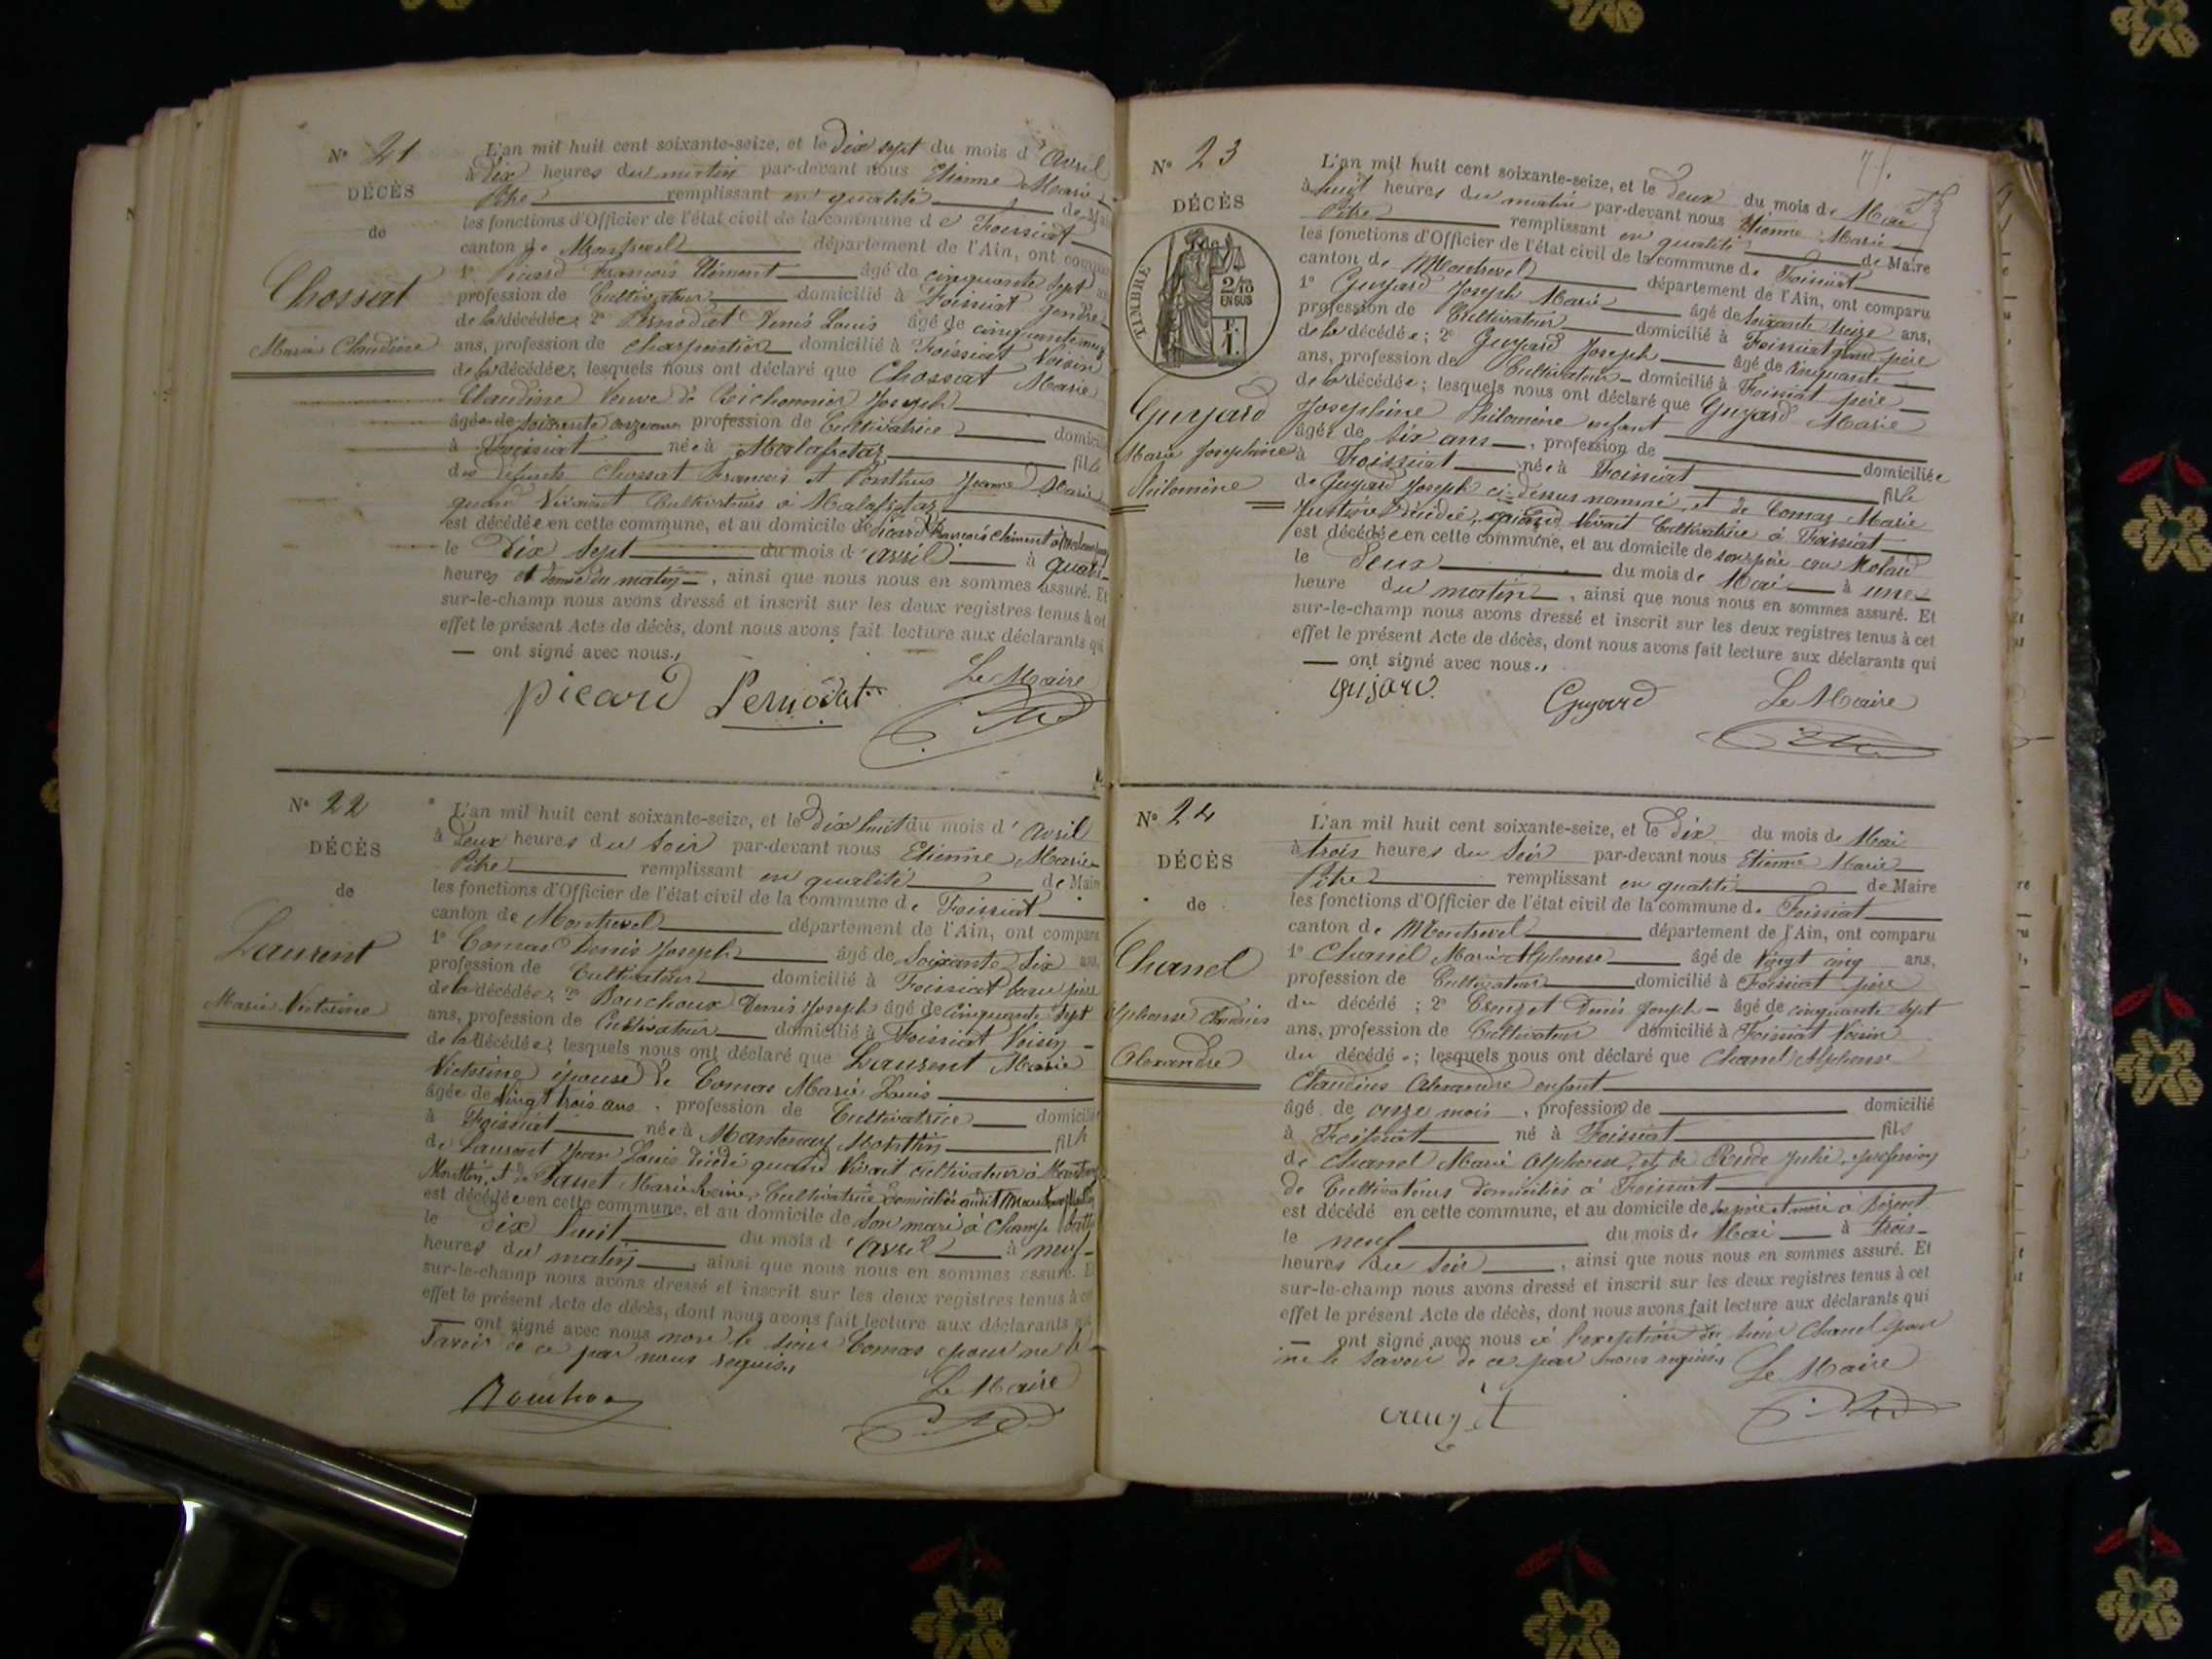 N° 21
DÉCÈS
de
Chossat
Marie Claudine
L'an mil huit cent soixante-seize, et le dix sept du mois d'Avril
à dix heures du matin par-devant nous Etienne Marie
Pitre remplissant en qualité de Maire
les fonctions d'Officier de l'état civil de la commune de Foissiat
canton de Montrevel département de l'Ain, ont comparu
1° Picard François Clément âgé de cinquante sept ans
profession de Cultivateur domicilié à Foissiat gendre
de la décédée; 2° Pernodat Denis Louis âgé de cinquante neuf
ans, profession de Charpentier domicilié à Foissiat Voisin
de la décédée; lesquels nous ont déclaré que Chossat Marie
Claudine Veuve de Bichonnier Joseph
âgée de soixante onze ans profession de Cultivatrice domiciliée
à Foissiat née à Malafretaz fille
des défunts Chossat François et Ponthus Jeanne Marie
quand Vivaient Cultivateurs à Malafretaz
est décédée en cette commune, et au domicile de Picard François Clément à
le Dix Sept du mois d'avril à quatre
heures et demie du matin, ainsi que nous nous en sommes assuré. Et
sur-le-champ nous avons dressé et inscrit sur les deux registres tenus à cet
effet le présent Acte de décès, dont nous avons fait lecture aux déclarants qui
— ont signé avec nous.
Picard Pernodat Le Maire
N° 22
DÉCÈS
de
Laurent
Marie Victorine
L'an mil huit cent soixante-seize, et le dix huit du mois d'Avril
à Deux heures du Soir par-devant nous Etienne Marie
Pitre remplissant en qualité de Maire
les fonctions d'Officier de l'état civil de la commune de Foissiat
canton de Montrevel département de l'Ain, ont comparu
1° Comas Denis Joseph âgé de Soixante Six ans,
profession de Cultivateur domicilié à Foissiat beau père
de la décédée; 2° Bouchoux Denis Joseph âgé de cinquante Sept
ans, profession de Cultivateur domicilié à Foissiat Voisin
de la décédée; lesquels nous ont déclaré que Laurent Marie
Victorine épouse de Comas Marie Louis
âgée de Vingt trois ans, profession de Cultivatrice domiciliée
à Foissiat née à Mantenay Montlin fille
de Laurent Jean Louis décédé quand Vivait cultivateur à Mantenay
Montlin, et de Panet Marie Reine, Cultivatrice domiciliée audit Mantenay Montlin
est décédée en cette commune, et au domicile de son mari à Champ
le dix huit du mois d'Avril à neuf
heures du matin, ainsi que nous nous en sommes assuré. Et
sur-le-champ nous avons dressé et inscrit sur les deux registres tenus à cet
effet le présent Acte de décès, dont nous avons fait lecture aux déclarants qui
— ont signé avec nous non le sieur Comas pour ne le
Savoir de ce par nous requis.
Bouchoux Le Maire
N° 23
DÉCÈS
TIMBRE
2/10
EN SUS
Guyard
Marie Joséphine
Philomène
L'an mil huit cent soixante-seize, et le Deux du mois de Mai
à huit heures du matin par-devant nous Etienne Marie
Pitre remplissant en qualité de Maire
les fonctions d'Officier de l'état civil de la commune de Foissiat
canton de Montrevel département de l'Ain, ont comparu
1° Guyard Joseph Marie âgé de soixante treize ans,
profession de Cultivateur domicilié à Foissiat grand père
de la décédée; 2° Guyard Joseph âgé de cinquante
ans, profession de Cultivateur domicilié à Foissiat père
de la décédée; lesquels nous ont déclaré que Guyard Marie
Josephine Philomène enfant
âgée de six ans, profession de domiciliée
à Foissiat née à Foissiat fille
de Guyard Joseph ci-dessus nommé, et de Comas Marie
Justine décédée, quand Vivait Cultivatrice à Foissiat
est décédée en cette commune, et au domicile de son père au Molard
le Deux du mois de Mai à une
heure du matin, ainsi que nous nous en sommes assuré. Et
sur-le-champ nous avons dressé et inscrit sur les deux registres tenus à cet
effet le présent Acte de décès, dont nous avons fait lecture aux déclarants qui
— ont signé avec nous.
Guyard Guyard Le Maire
N° 24
DÉCÈS
de
Chanel
Alphonse Claudius
Alexandre
L'an mil huit cent soixante-seize, et le Dix du mois de Mai
à trois heures du Soir par-devant nous Etienne Marie
Pitre remplissant en qualité de Maire
les fonctions d'Officier de l'état civil de la commune de Foissiat
canton de Montrevel département de l'Ain, ont comparu
1° Chanel Marie Alphonse âgé de Vingt cinq ans,
profession de Cultivateur domicilié à Foissiat père
du décédé; 2° Creuzet Denis Joseph – âgé de cinquante sept
ans, profession de Cultivateur domicilié à Foissiat Voisin
du décédé; lesquels nous ont déclaré que Chanel Alphonse
Claudius Alexandre enfant
âgé de onze mois, profession de domicilié
à Foissiat né à Foissiat fils
de Chanel Marie Alphonse, et de Rude Julie, profession
de Cultivateurs domiciliés à Foissiat
est décédé en cette commune, et au domicile de ses père et mère à
le neuf du mois de Mai à trois
heures du Soir, ainsi que nous nous en sommes assuré. Et
sur-le-champ nous avons dressé et inscrit sur les deux registres tenus à cet
effet le présent Acte de décès, dont nous avons fait lecture aux déclarants qui
— ont signé avec nous à l'exception du sieur Chanel pour
ne le Savoir de ce par nous requis.
Le Maire
Creuzet